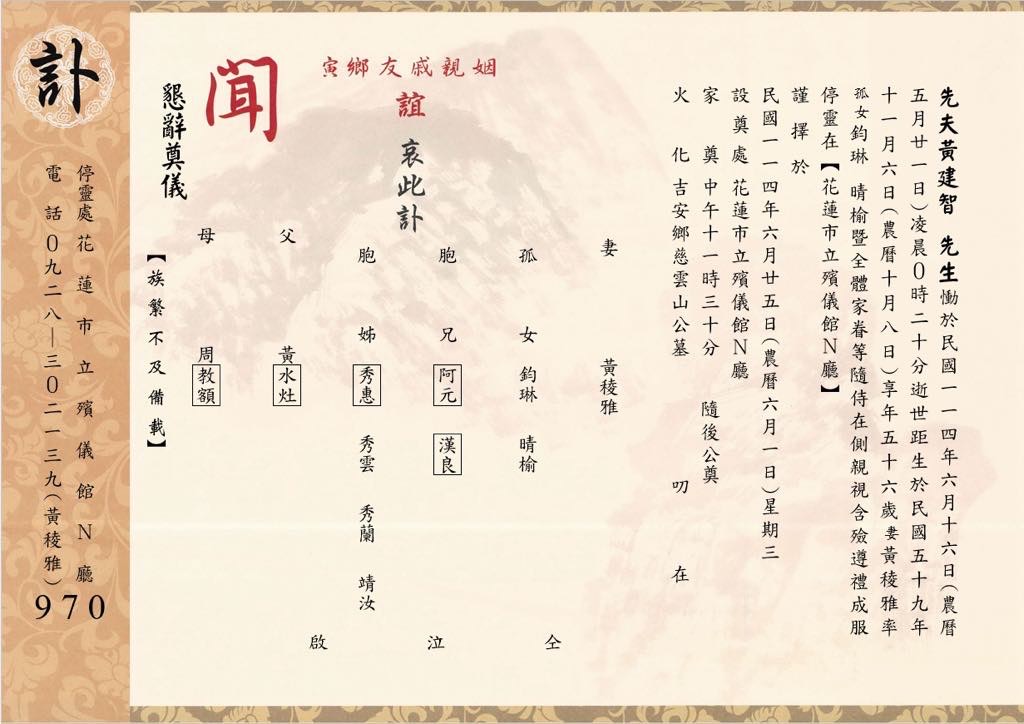 先夫黃建智 先生慟於民國一一四年六月十六日(農曆
五月廿一日)凌晨0時二十分逝世距生於民國五十九年
十一月六日(農曆十月八日)享年五十六歲妻黃稜雅率
孤女鈞琳 晴榆暨全體家眷等隨侍在側親視含殮遵禮成服
停靈在【花蓮市立殯儀館N廳】
謹擇於
民國一一四年六月廿五日(農曆六月一日)星期三
設奠處 花蓮市立殯儀館N廳
家奠 中午十一時三十分 隨後公奠
火化 吉安鄉慈雲山公墓 叨在
姻親戚友鄉寅
誼 哀此訃
聞
懇辭奠儀
妻 黃稜雅
孤女 鈞琳 晴榆
胞兄 阿元 漢良
胞姊 秀惠 秀雲 秀蘭 靖汝
父 黃水灶
母 周教額
【族繁不及備載】
仝泣啟
訃
停靈處 花蓮市立殯儀館N廳
電話0九二八—三0二一三九(黃稜雅)
970